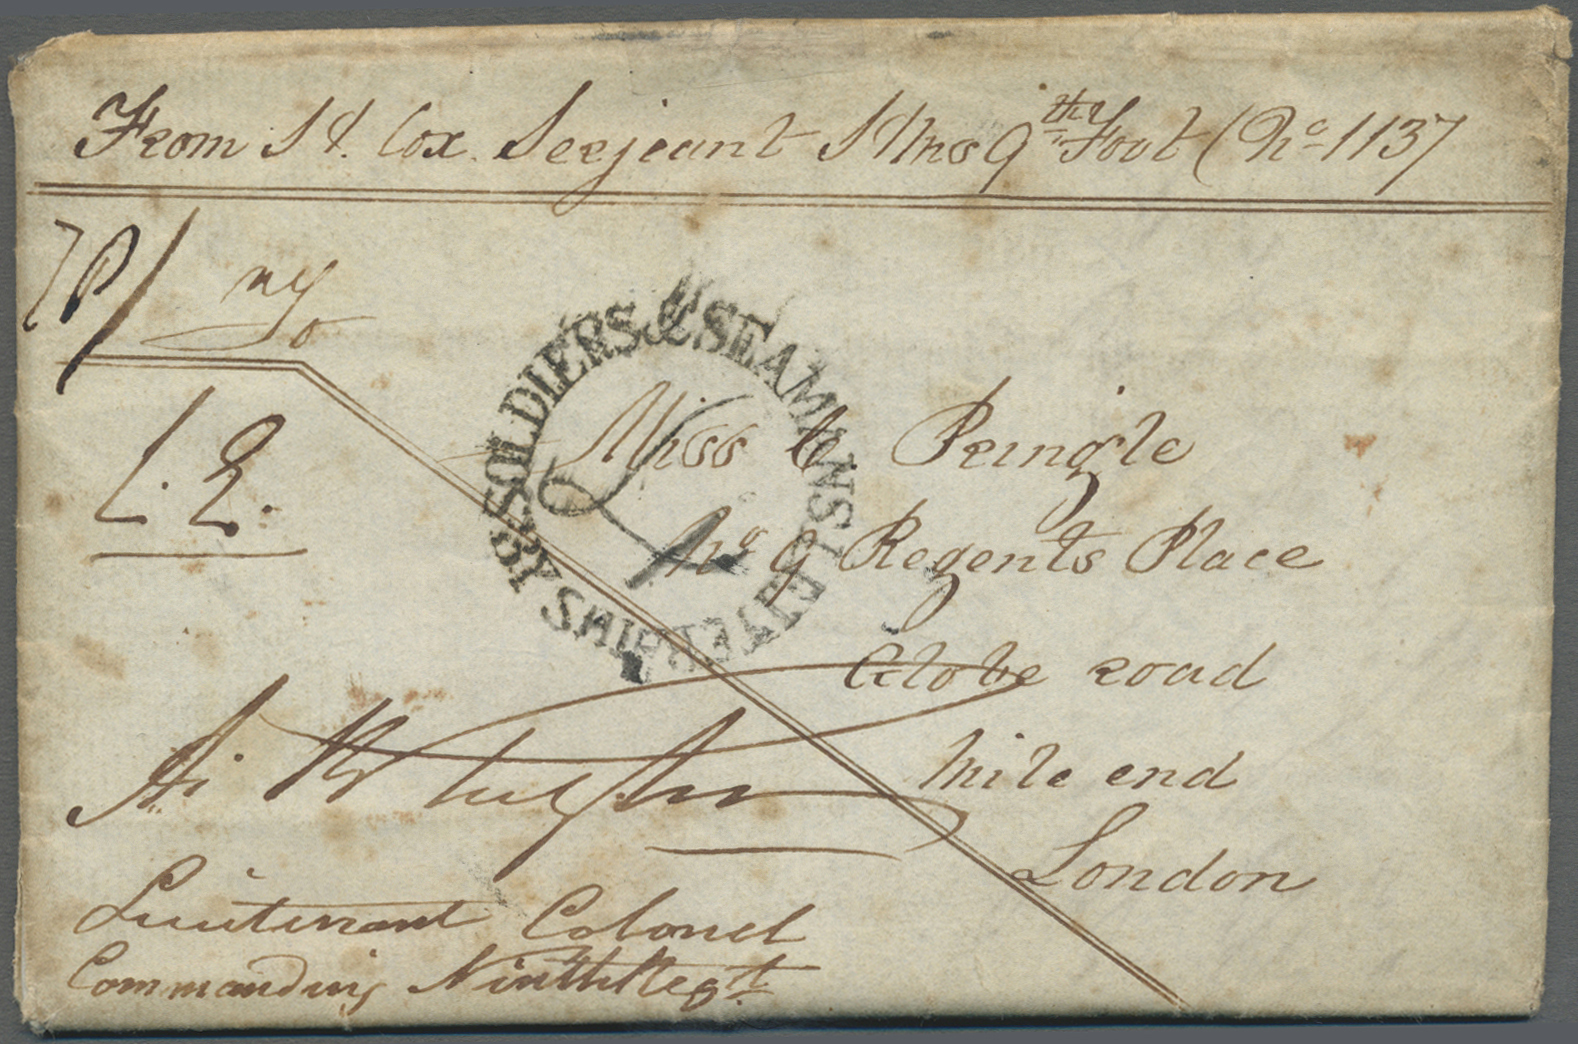 From Cox Serjeant 9th Foot (No 1137
L. E.
SOLDIERS & SEAMANS LETTER BY SHIPPS
Miss Pringle
No 9 Regents Place
Globe road
Mile end
London
Lieutenant Colonel
Commanding Ninth Regt